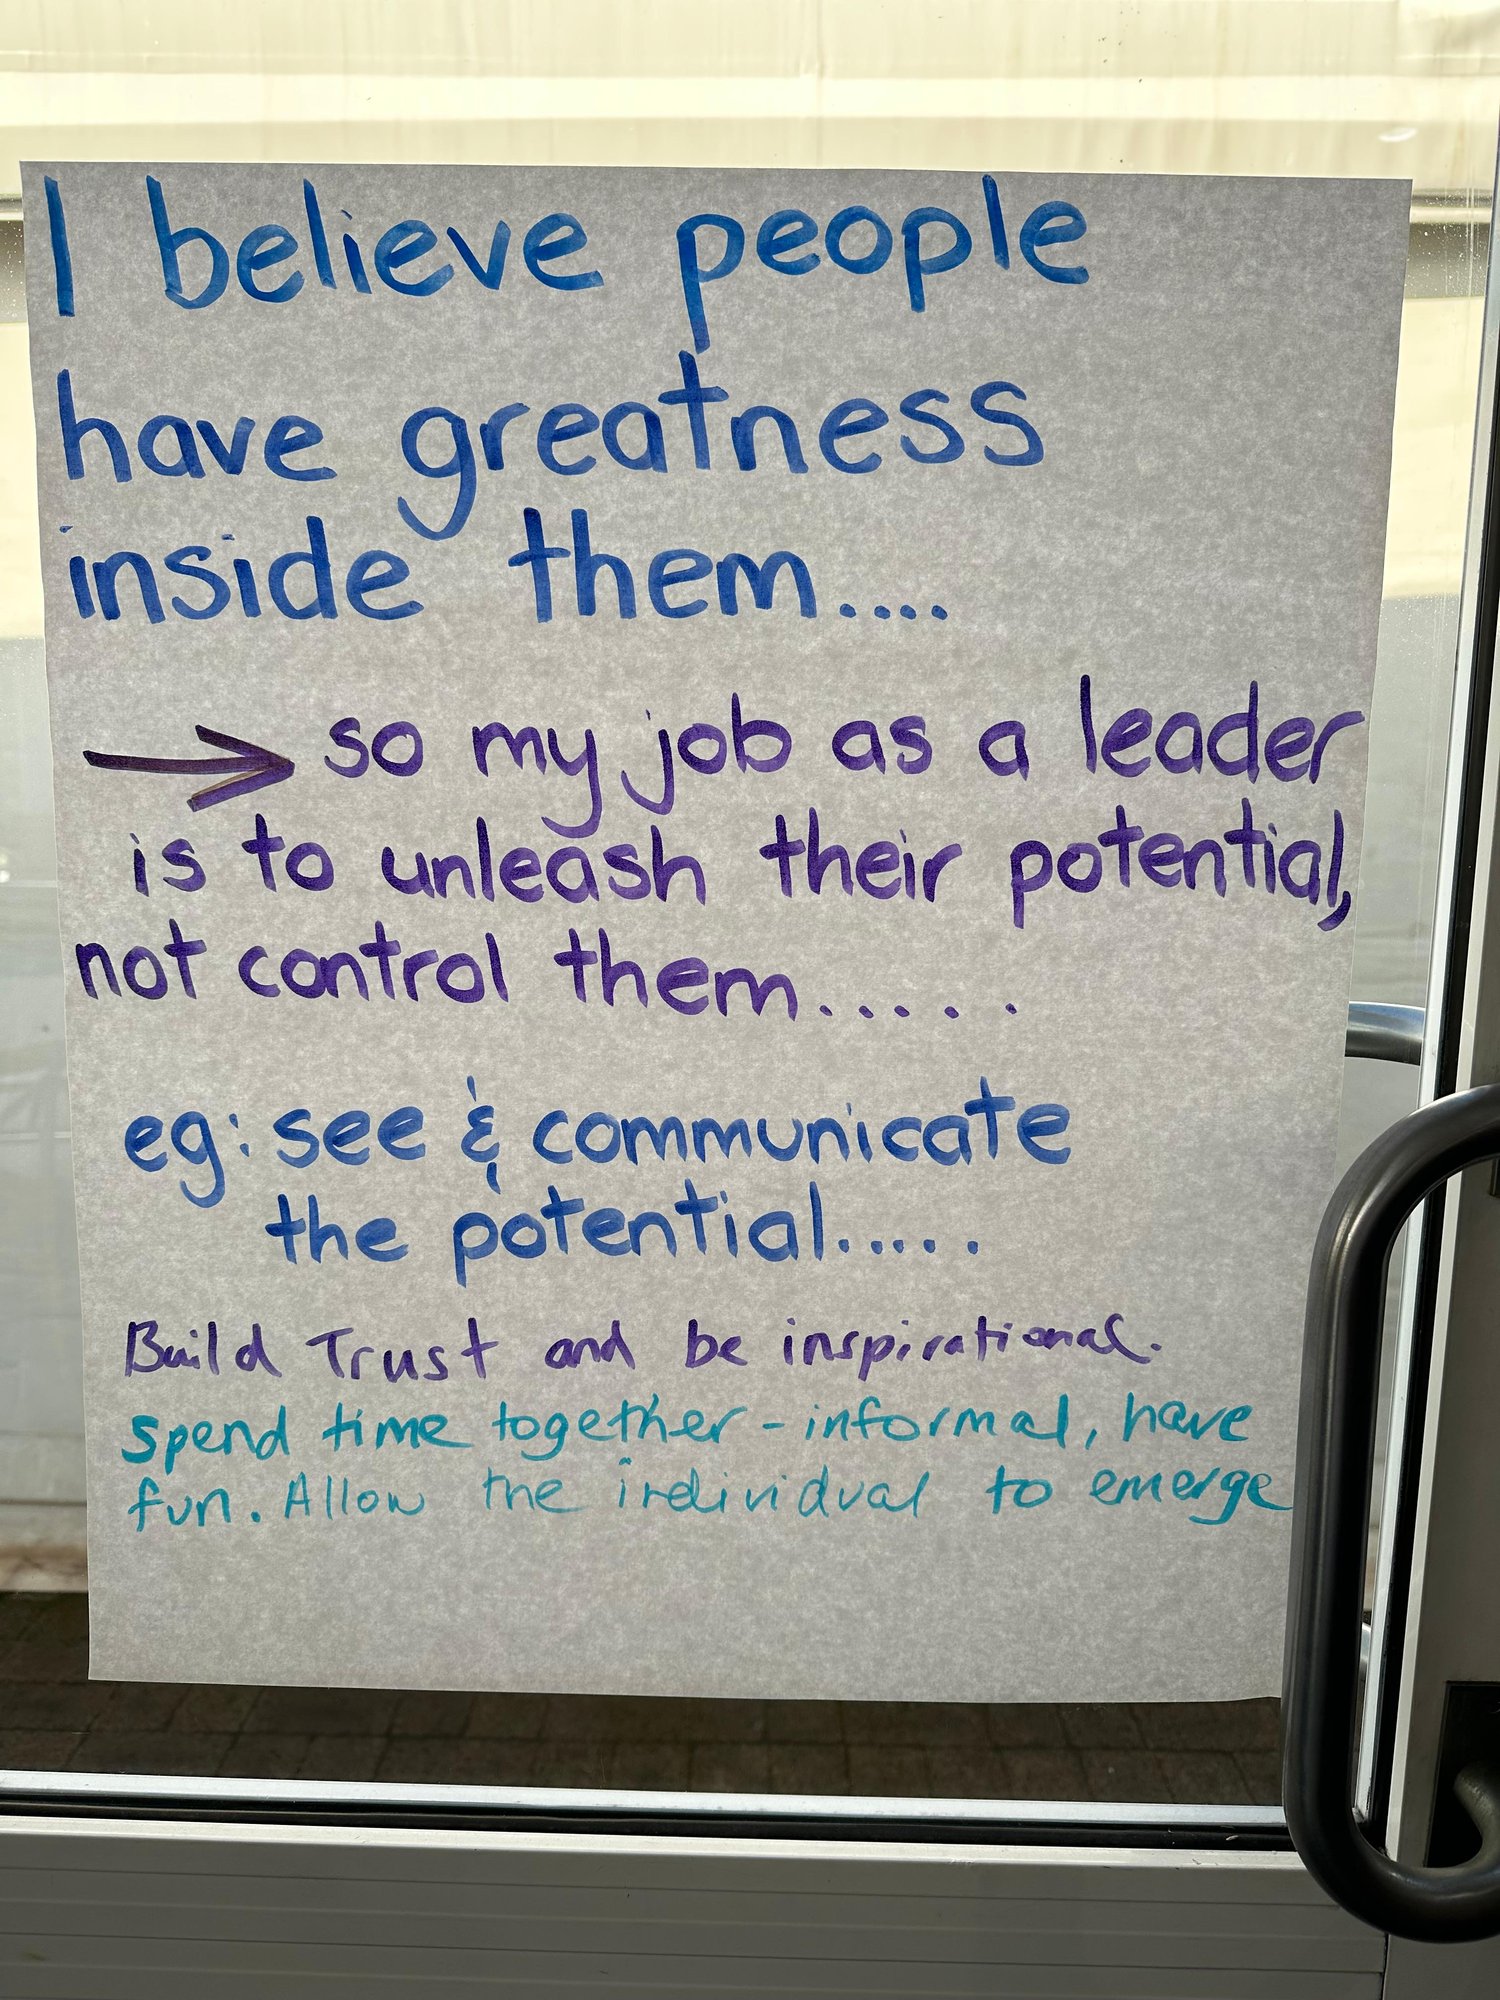 I believe people
have greatness
inside them....
→ so my job as a leader
is to unleash their potential,
not control them.....
eg: see & communicate
the potential.....
Build Trust and be inspirational.
Spend time together - informal, have
fun. Allow the individual to emerge